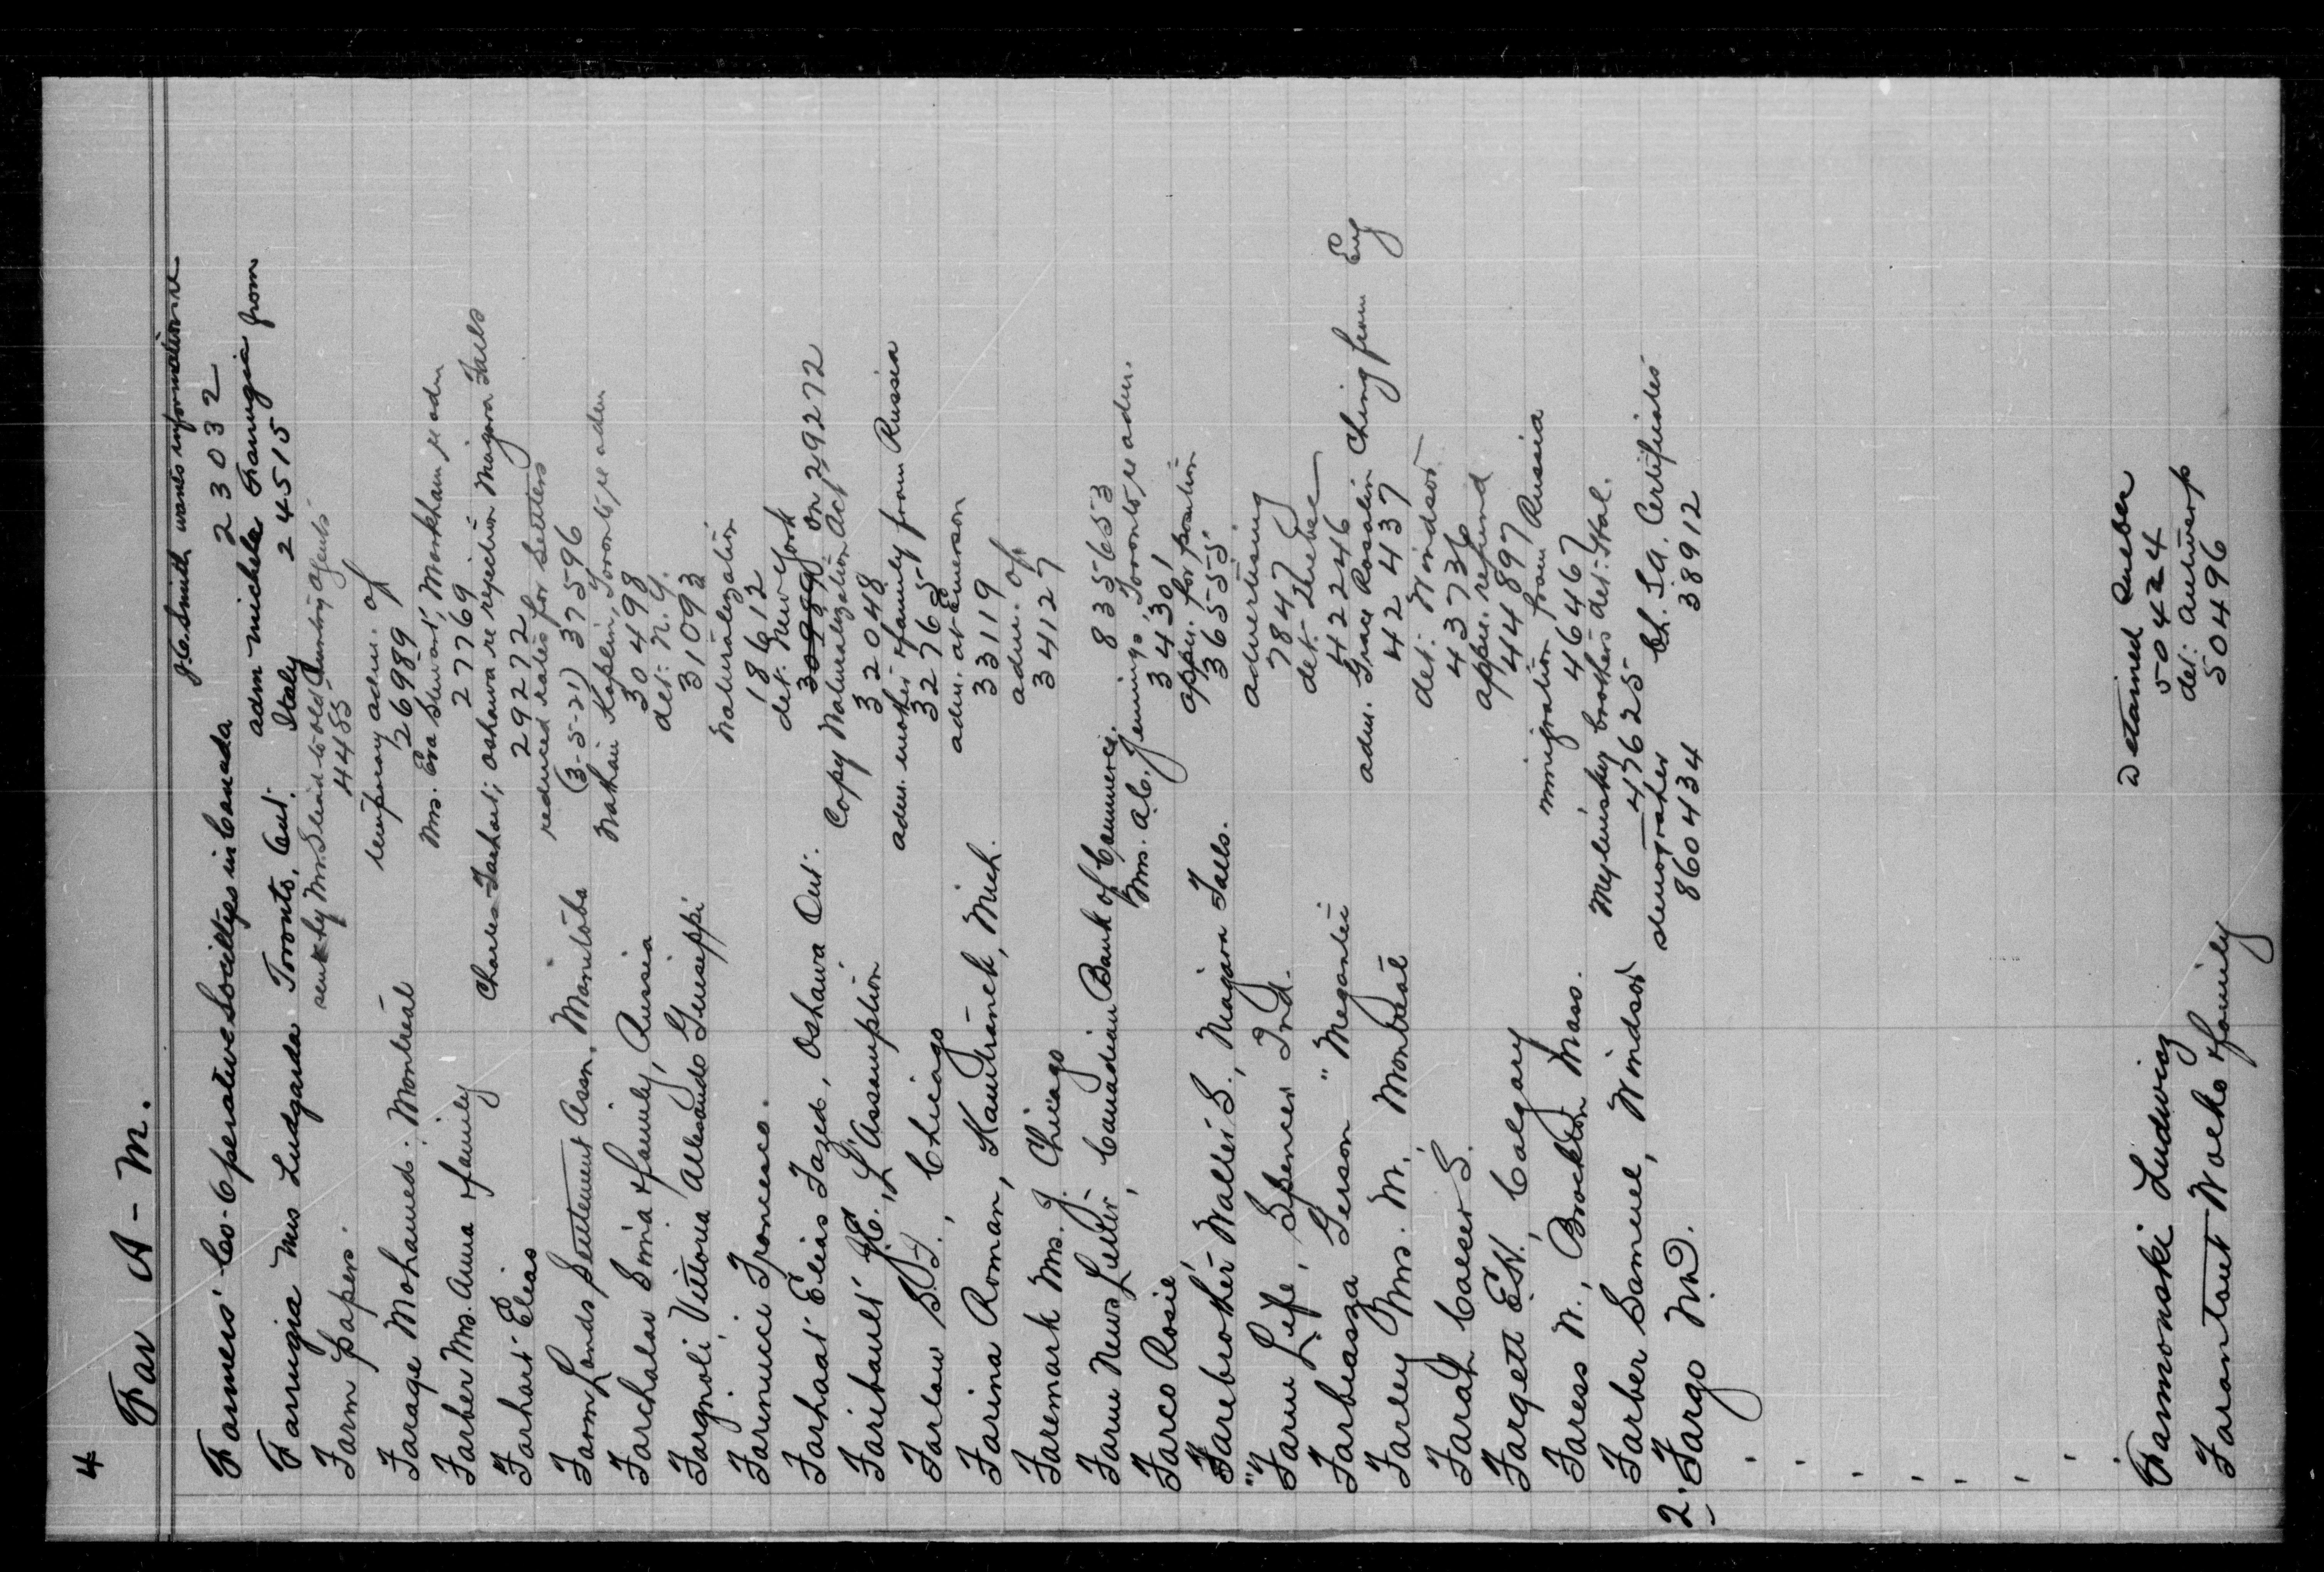 4
Far A - M.
J.C. Smith wants information re
Farmers' Co-Operative Societies in Canada 23032
adm Michele Farrugia from
Farrugia Mrs Ludgarda Toronto, Ont. Italy 24515
sent by Mr. to old Country Agents
Farm papers. 4485
temporary adm. of
Farage Mohamed. Montreal 26989
Mrs. Eva Stewart, Markham re adm
Farber Mrs. Anna & family 27769
Charles Farhart; Oshawa re rejection Niagara Falls
Farhart Elias 29272
reduced rates for settlers
Farm Lands Settlement Assn. Manitoba (3-5-21) 37596
Nathan Kaplin, Toronto, re adm
Farchalav Sonia & family, Russia 30498
det: N.Y.
Fargnoli Vittoria Allesando Guiseppi 31093
Naturalization
Farinucci Francesco. 18612
det: New York
Farhaat Elias Fazed, Oshawa Ont. 30989. on 29272
Copy Naturalization Act
Faribault J.E., L'Assumption 32048
adm. mother & family from Russia
Farlaw S.I., Chicago 32765
adm. at Emerson
Farina Roman, Hamtramck, Mich. 33119
adm. of
Faremark Mrs. J. Chicago 34127
Farm News Letter, Canadian Bank of Commerce. 835653
Mrs. A.C. Jennings, Toronto, re adm.
Farco Rosie, 34301
appn. for position
Farebrother Walter S., Niagara Falls. 36555
advertising
"Farm Life, Spencer Ind. 7847
det: Quebec
Farbiasza Gerson "Megantic 42246
adm. Grace Rosalin Ching from Eng
Farley Mrs. M. Montreal 42437
det: Windsor
Farah Caeser S. 43736
appn. refund
Fargett E.W., Calgary 44897
immigration from Russia
Faress N., Brockton Mass. 46467
brothers det: Hal.
Farber Samuel, Windsor 47625
stenographer Ch. S.A. Certificates
2. Fargo N.D. 860434 38912
Detained Quebec
Farmonski Ludwig 50424
det: Antwerp
Farantaut Wolko & family 50496